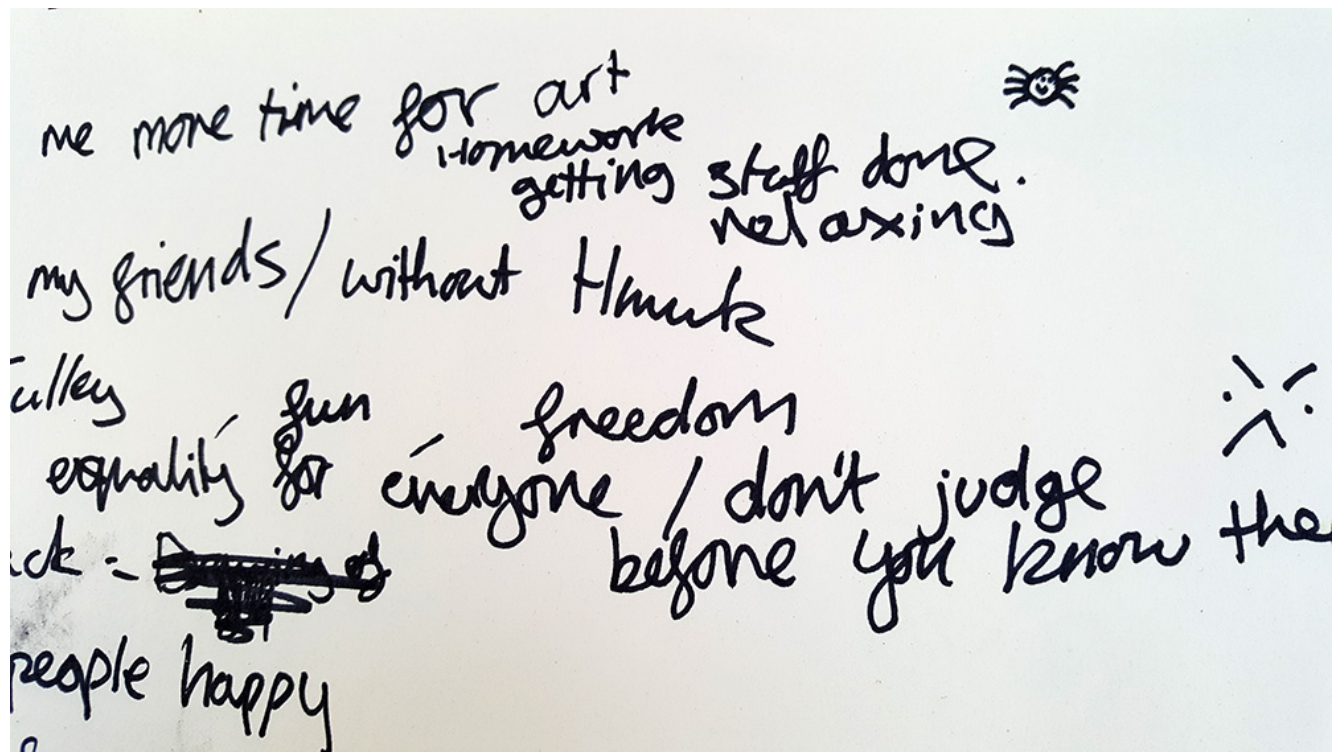 me more time for art
Homework
getting staff done.
relaxing
my friends / without Hmwk
fun freedom
equality for everyone / don't judge
before you know the
people happy